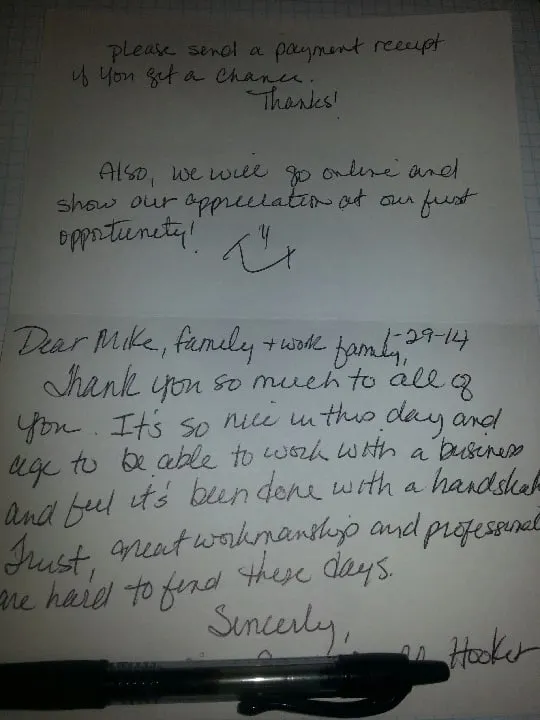 please send a payment receipt
if you get a chance.
Thanks!
Also, we will go online and
show our appreciation at our first
opportunity!
1-29-14
Dear Mike, family + work family,
Thank you so much to all of
you. It's so nice in this day and
age to be able to work with a business
and feel it's been done with a handshak
Trust, great workmanship and professional
are hard to find these days.
Sincerly,
Hooker